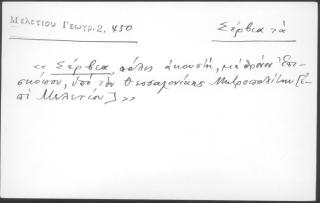 Μελετίου Γεωγρ. 2, 450
Σέρβια τὰ
<< Σέρβια, πόλις ἀκουστή, μὲ θρόνον Ἐπι-
σκόπου, ὑπὸ τὸν Θεσσαλονίκης Μητροπολίτην [ἐ-
πὶ Μελετίου] >>